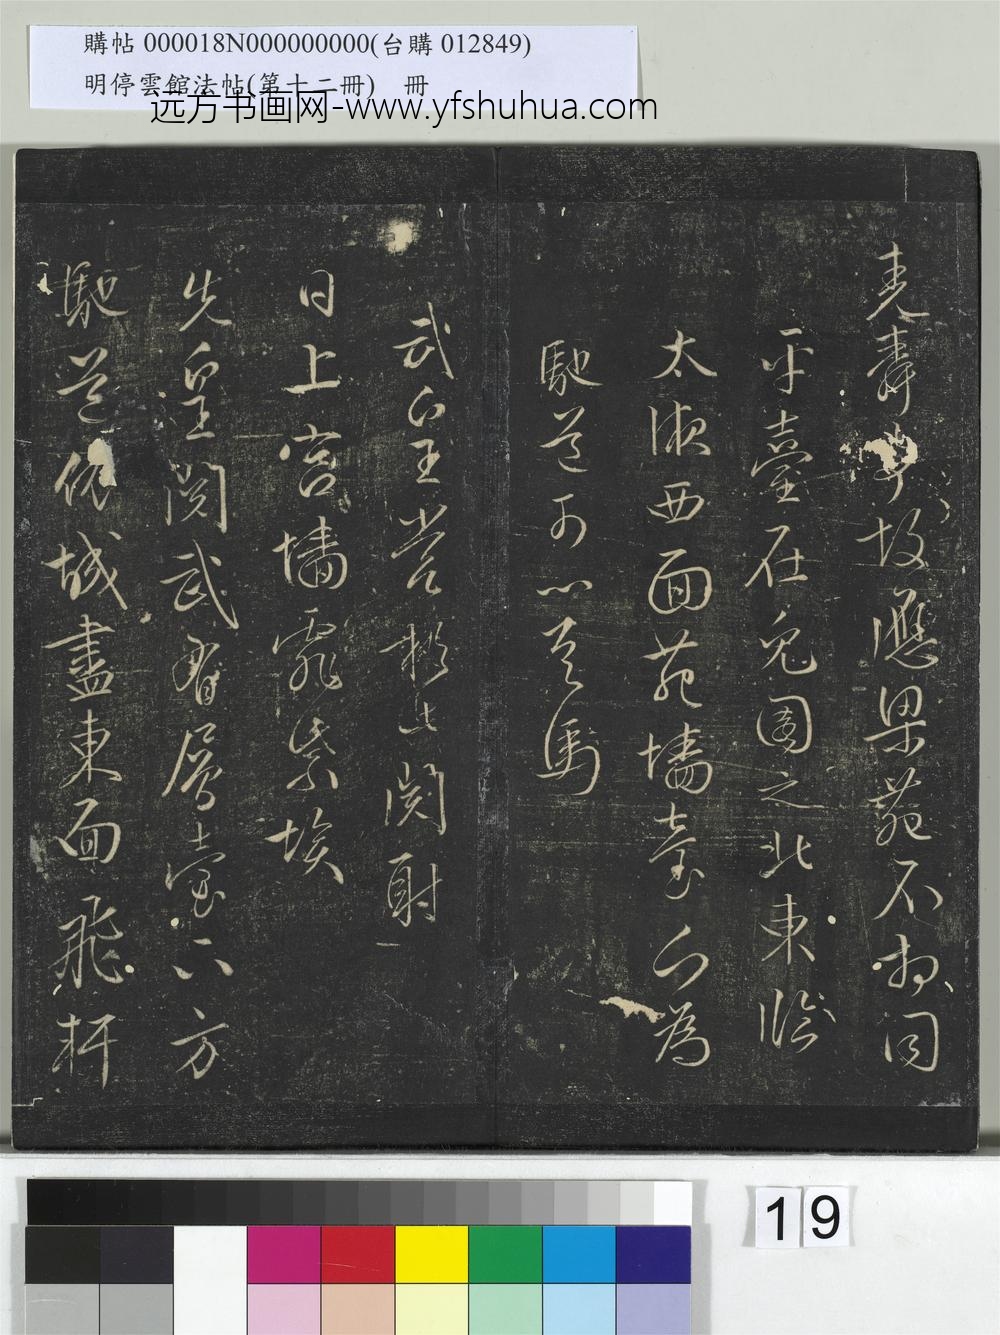 購帖 000018N000000000(台購 012849)
明停雲館法帖(第十二冊) 冊
远方书画网-www.yfshuhua.com
堯舜事故應梁苑不相同
平臺在兔園之北東臨
太液西面苑墻臺下為
馳道可以走馬
武皇嘗於此閱射
日上宮墻霏紫埃
先皇閱武有層臺下方
馳道依城盡東面飛軒
19